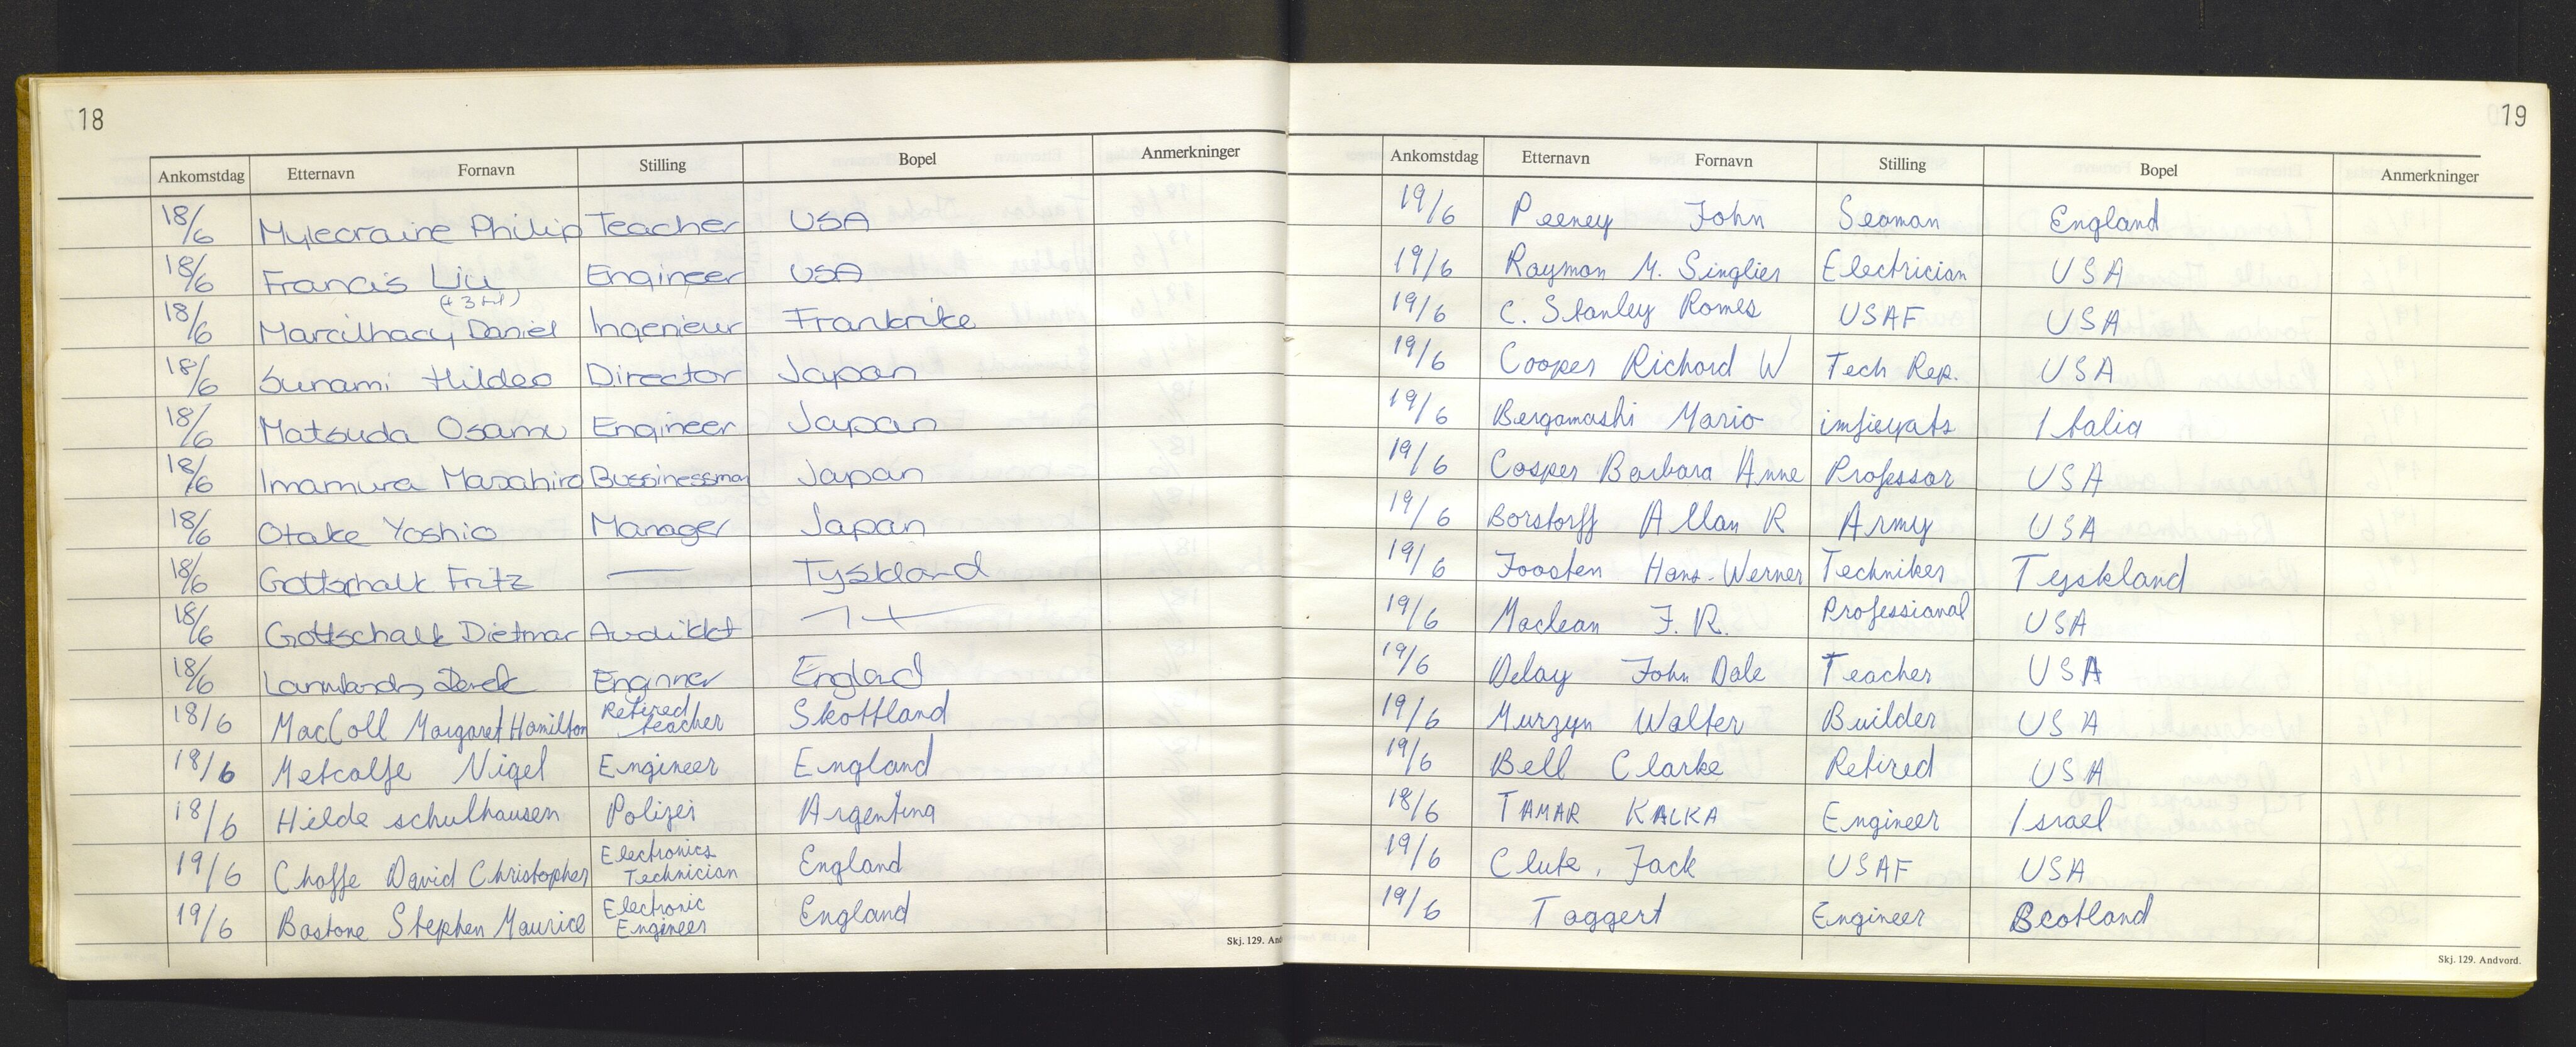 18
Ankomstdag Etternavn Fornavn Stilling Bopel Anmerkninger
18/6 Mylecraine Philip Teacher USA
18/6 Francis Liu Engineer USA
(+3 )
18/6 Marcilhacy Daniel Ingenieur Frankrike
18/6 Sunami Hildeo Director Japan
18/6 Matsuda Osamu Engineer Japan
18/6 Imamura Masahiro Bussinessman Japan
18/6 Otake Yoshio Manager Japan
18/6 Gottschalk Fritz — Tyskland
18/6 Gottschalk Dietmar
18/6 Derek Enginner Englad
18/6 MacColl Margaret Hamilton Retired teacher Skottland
18/6 Metcalfe Nigel Engineer England
18/6 Hilde schulhausen Polizei Argentina
19/6 Choffe David Christopher Electronics Technician England
19/6 Bastone Stephen Maurice Electronic Engineer England
Skj. 129. And
19
Ankomstdag Etternavn Fornavn Stilling Bopel Anmerkninger
19/6 Peeney John Seaman England
19/6 Raymon M. Singlier Electrician USA
19/6 C. Stanley Romes USAF USA
19/6 Cooper Richard W Tech Rep. USA
19/6 Bergamashi Mario Italia
19/6 Cosper Barbara Anne Professor USA
19/6 Borstorff Allan R Army USA
19/6 Joosten Hans-Werner Techniker Tyskland
19/6 Maclean J. R. Professional USA
19/6 Delay John Dale Teacher USA
19/6 Murzyn Walter Builder USA
19/6 Bell Clarke Retired USA
18/6 TAMAR KALKA Engineer Israel
19/6 Clute, Jack USAF USA
19/6 Taggert Engineer Scotland
Skj. 129. Andvord.